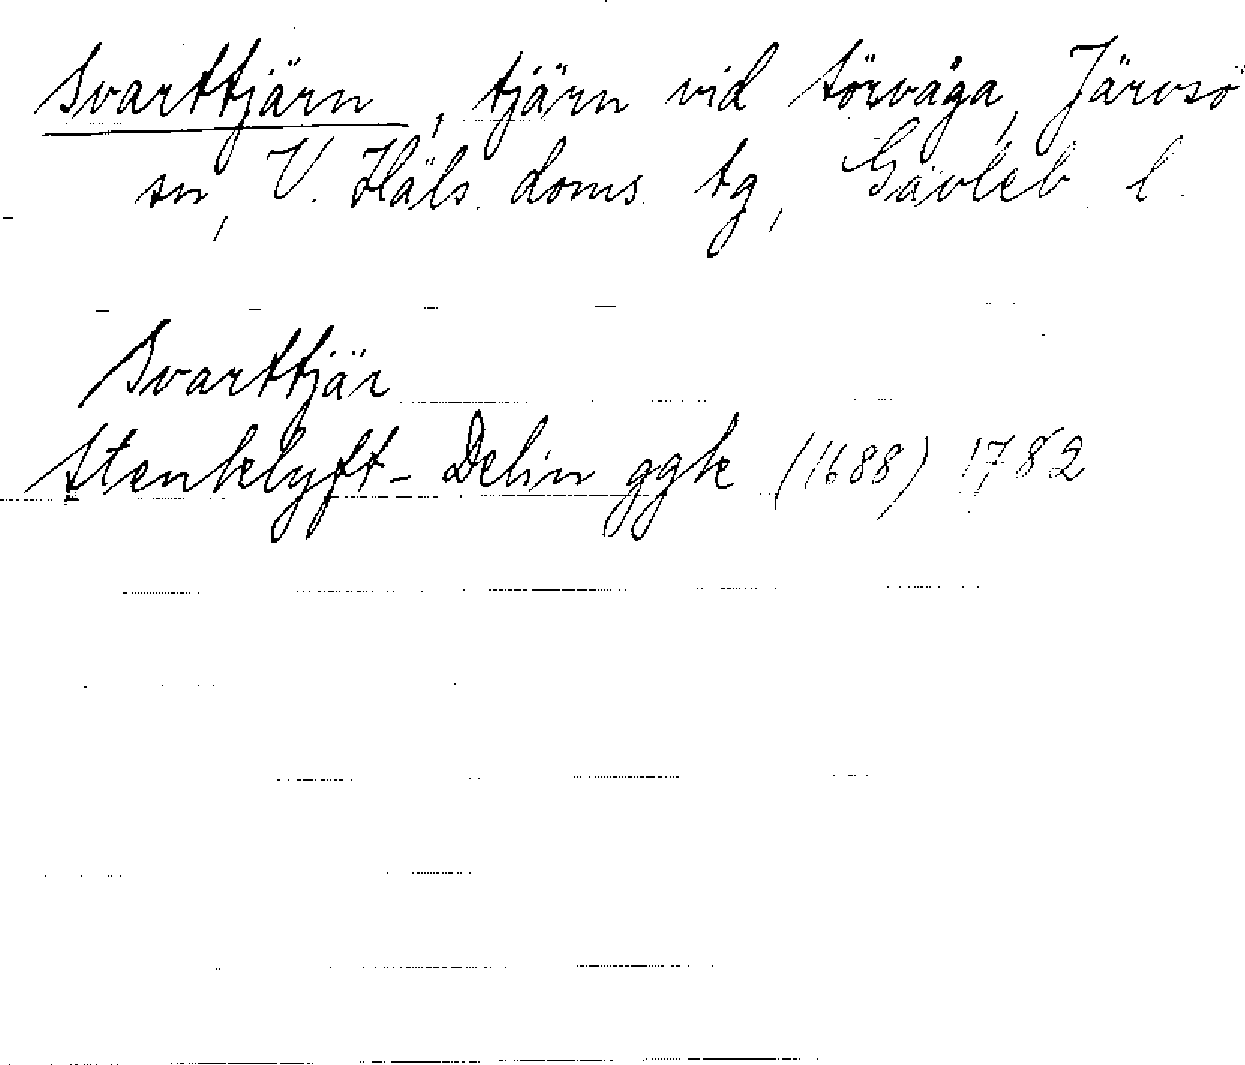 Svarttjärn, tjärn vid Sörvåga, Järvsö
sn, V. Häls. doms. tg, Gävleb. l.
Svarttjär
Stenklyft- Delin ggk (1688) 1782